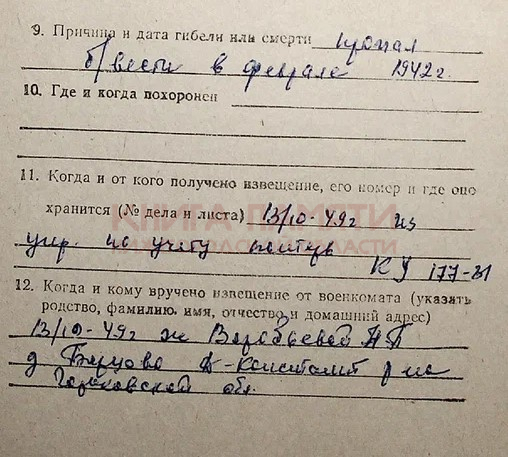 9. Причина и дата гибели или смерти пропал
б/вести в феврале 1942 г.
10. Где и когда похоронен
11. Когда и от кого получено извещение, его номер и где оно
хранится (№ дела и листа) 13/10-49 г из
КНИГА ПАМЯТИ
НИЖЕГОРОДСКОЙ ОБЛАСТИ
упр. по учету потерь
КУ 177-31
12. Когда и кому вручено извещение от военкомата (указать
родство, фамилию, имя, отчество и домашний адрес)
13/10-49 г ж Воробьевой
д Д-Константин р на
Горьковской обл.